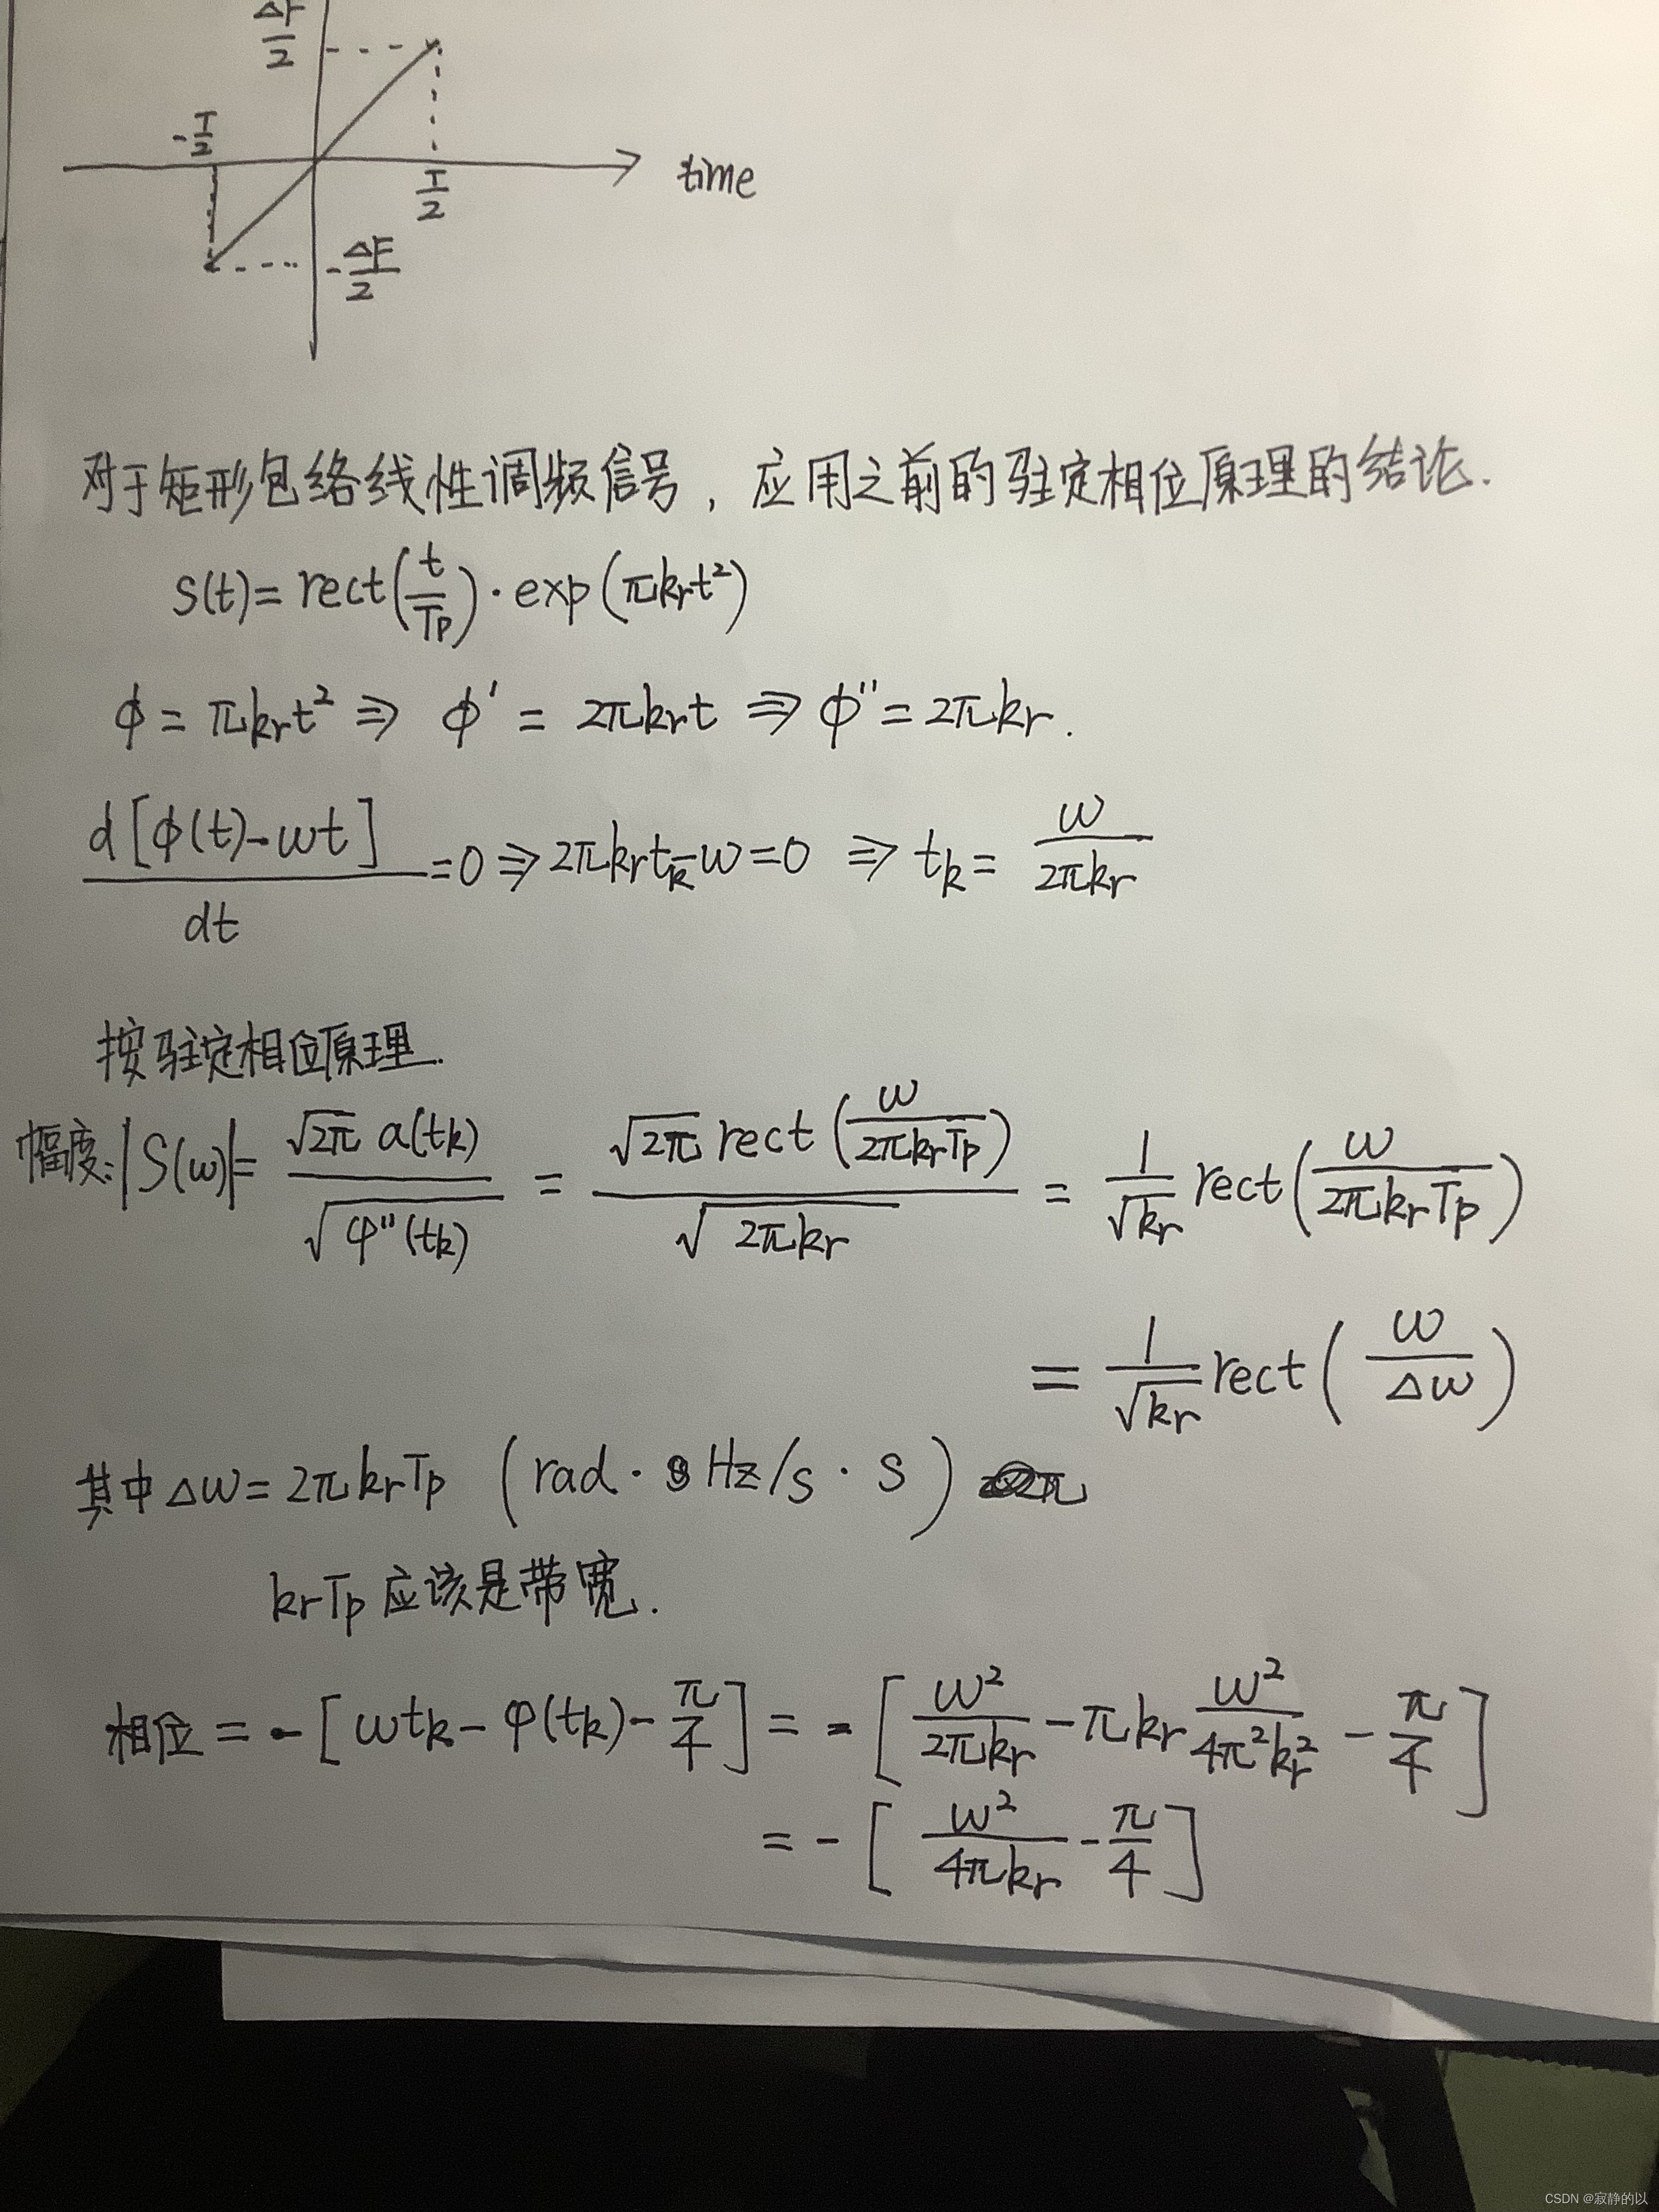 ΔF/2
-T/2
time
T/2
-ΔF/2
对于矩形包络线性调频信号，应用之前的驻定相位原理的结论.
s(t)=rect(t/Tp)·exp(πkrt²)
ϕ=πkrt² ⇒ ϕ'=2πkrt ⇒ ϕ''=2πkr.
d[ϕ(t)-ωt]/dt=0 ⇒ 2πkrtk-ω=0 ⇒ tk=ω/2πkr
按驻定相位原理.
幅度:|S(ω)|=√2π a(tk)/√φ''(tk)=√2π rect(ω/2πkrTp)/√2πkr=1/√kr rect(ω/2πkrTp)
=1/√kr rect(ω/Δω)
其中Δω=2πkrTp (rad·Hz/s·s) 2π
krTp应该是带宽.
相位=-[ωtk-φ(tk)-π/4]=-[ω²/2πkr-πkr ω²/4π²kr²-π/4]
=-[ω²/4πkr-π/4]
CSDN @寂静的以